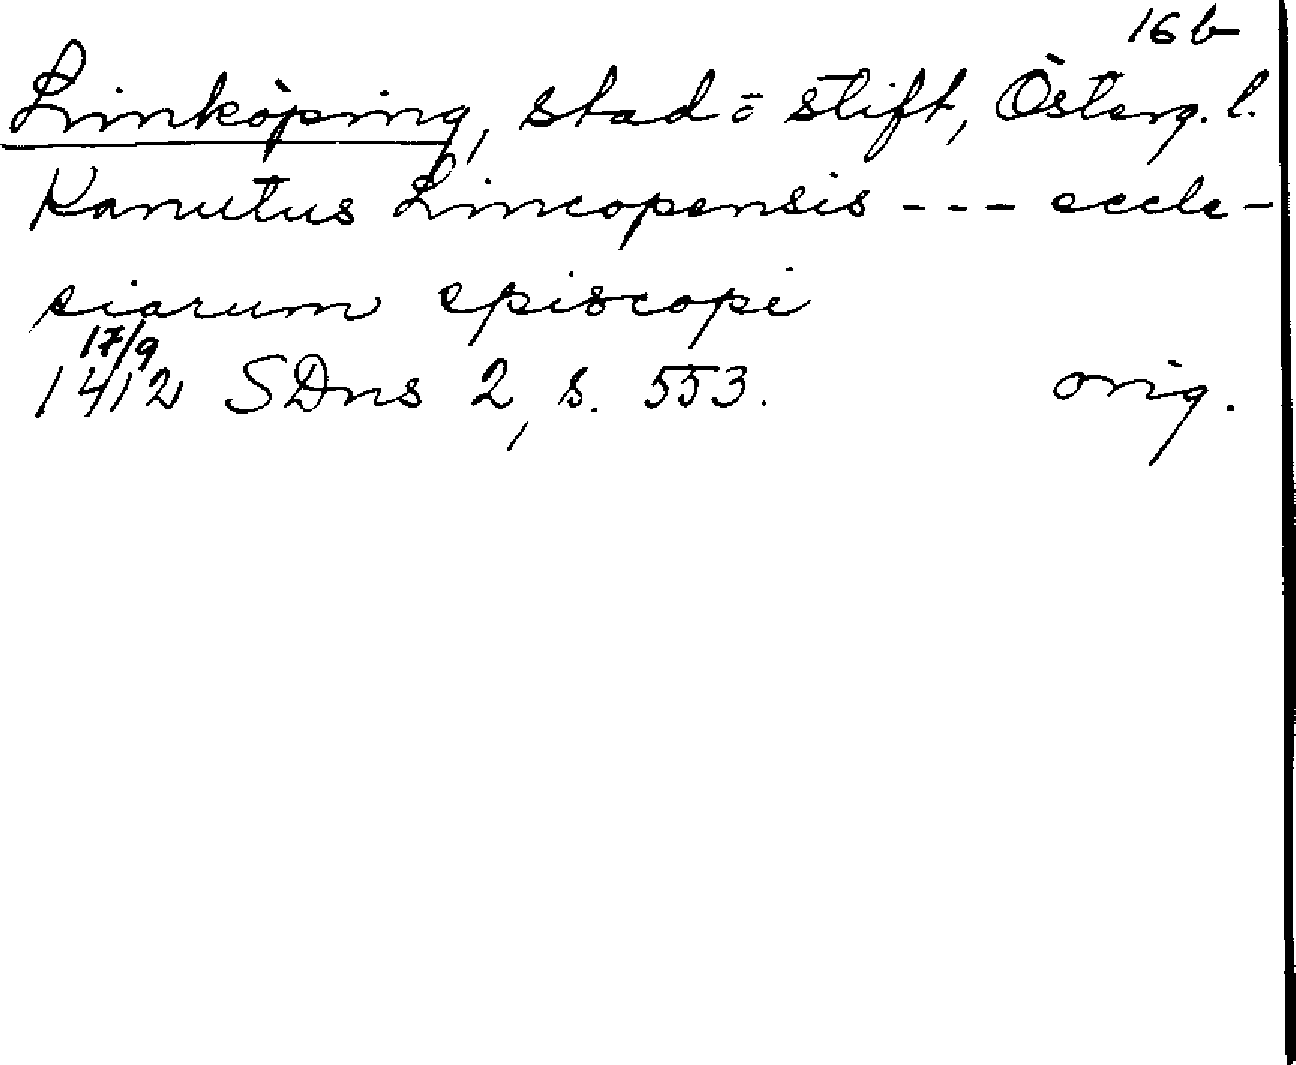 16 b
Linköping, stad o stift, Österg. l.
Kanutus Lincopensis --- eccle-
siarum episcopi
17/9
1412 SDns 2, s. 553. orig.